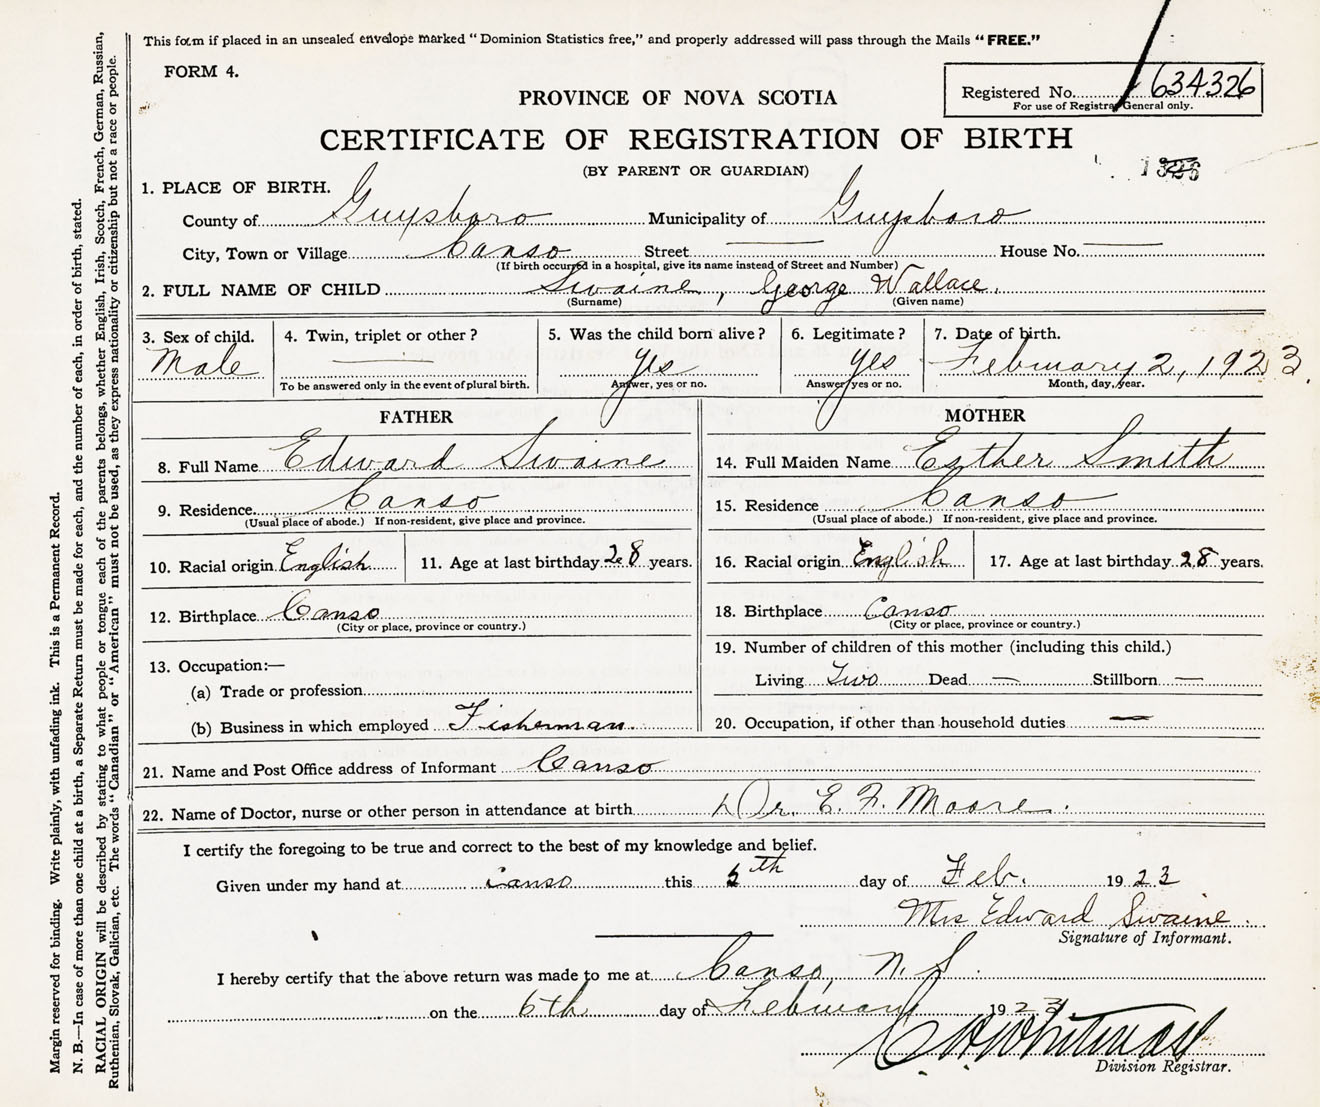 This form if placed in an unsealed envelope marked "Dominion Statistics free," and properly addressed will pass through the Mails "FREE."
FORM 4.
Registered No. 634326
For use of Registrar General only.
PROVINCE OF NOVA SCOTIA
CERTIFICATE OF REGISTRATION OF BIRTH
(BY PARENT OR GUARDIAN)
1. PLACE OF BIRTH.
County of Guysboro Municipality of Guysboro
City, Town or Village Canso Street — House No. —
(If birth occurred in a hospital, give its name instead of Street and Number)
2. FULL NAME OF CHILD Swaine, George Wallace.
(Surname) (Given name)
3. Sex of child. 4. Twin, triplet or other? 5. Was the child born alive? 6. Legitimate? 7. Date of birth.
Male — Yes Yes February 2, 1923.
To be answered only in the event of plural birth. Answer, yes or no. Answer yes or no. Month, day, year.
FATHER MOTHER
8. Full Name Edward Swaine 14. Full Maiden Name Esther Smith
9. Residence. Canso 15. Residence Canso
(Usual place of abode.) If non-resident, give place and province. (Usual place of abode.) If non-resident, give place and province.
10. Racial origin English 11. Age at last birthday 28 years. 16. Racial origin English 17. Age at last birthday 28 years.
12. Birthplace Canso 18. Birthplace Canso
(City or place, province or country.) (City or place, province or country.)
13. Occupation:— 19. Number of children of this mother (including this child.)
(a) Trade or profession Living Two Dead — Stillborn —
(b) Business in which employed Fisherman 20. Occupation, if other than household duties —
21. Name and Post Office address of Informant Canso
22. Name of Doctor, nurse or other person in attendance at birth Dr. E. F. Moore.
I certify the foregoing to be true and correct to the best of my knowledge and belief.
Given under my hand at Canso this 5th day of Feb. 1923
Mrs Edward Swaine.
Signature of Informant.
I hereby certify that the above return was made to me at Canso, N. S.
on the 6th day of February 1923
C H Whitman
Division Registrar.
Margin reserved for binding. Write plainly, with unfading ink. This is a Permanent Record.
N. B.—In case of more than one child at a birth, a Separate Return must be made for each, and the number of each, in order of birth, stated.
RACIAL ORIGIN will be described by stating to what people or tongue each of the parents belongs, whether English, Irish, Scotch, French, German, Russian,
Ruthenian, Slovak, Galician, etc. The words "Canadian" or "American" must not be used, as they express nationality or citizenship but not a race or people.